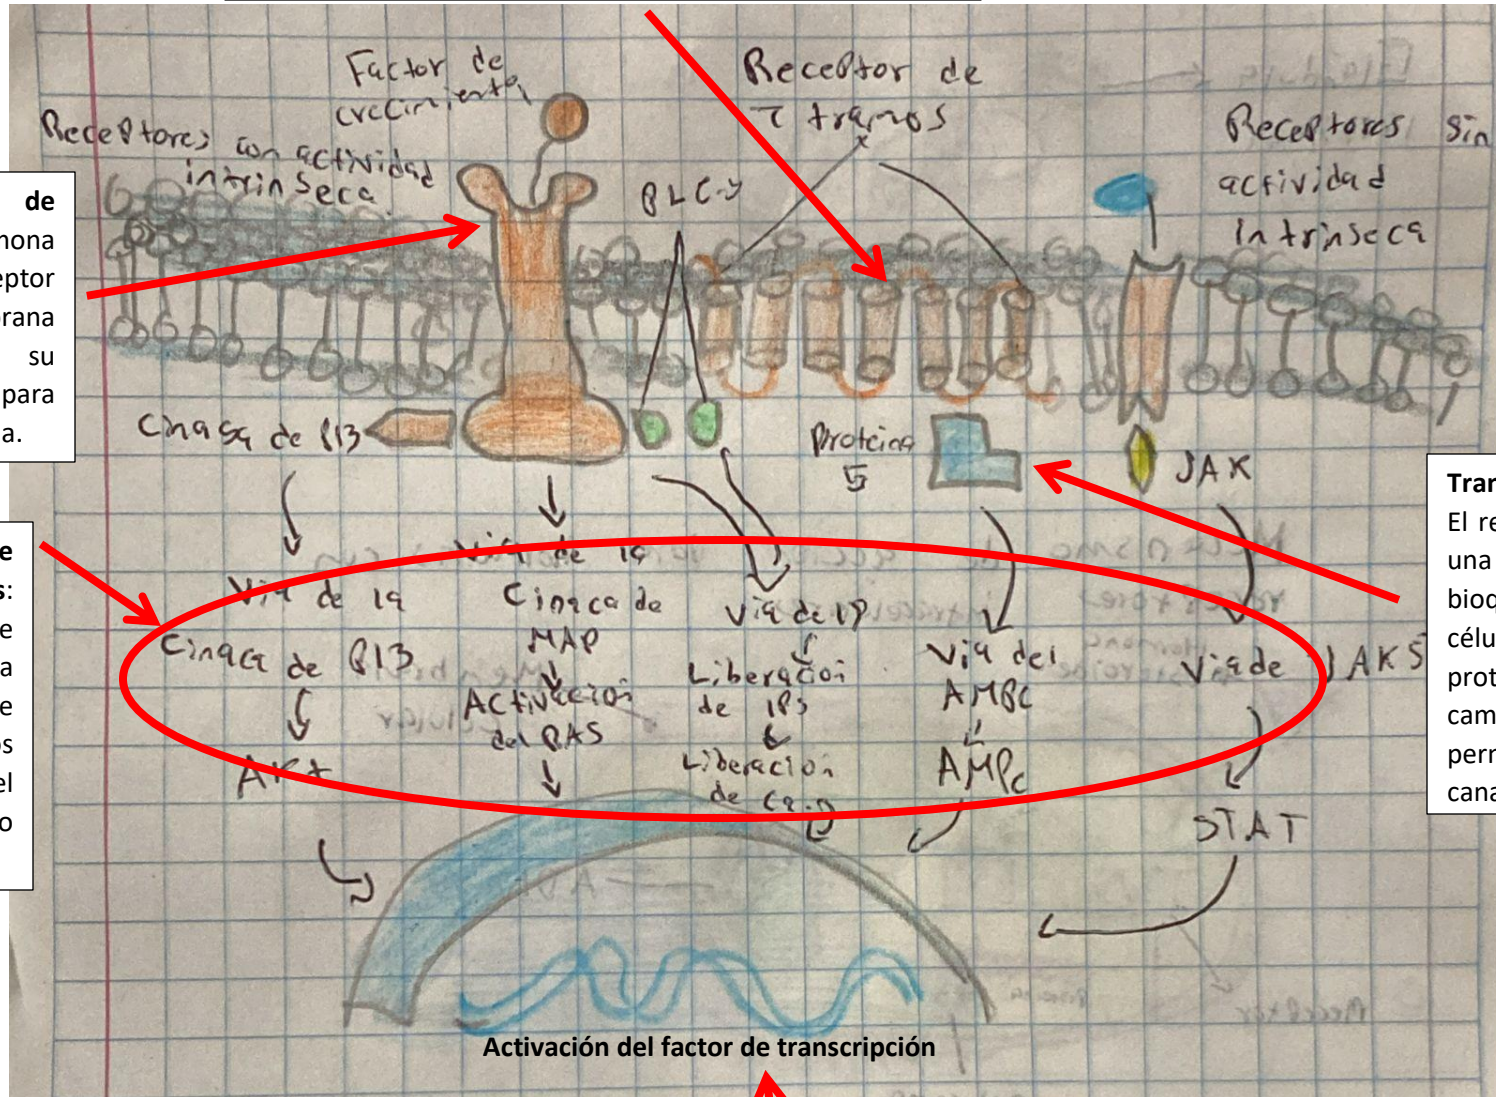 Factor de
crecimiento
Receptores con actividad
intrinseca
PLC-γ
Receptor de
7 tramos
Receptores sin
actividad
intrinseca
de
mona
eptor
orana
su
para
a.
Cinasa de PI3
Proteina
G
JAK
e
s:
e
a
e
os
el
o
Tran
El re
una
bioq
célu
prot
cam
perr
cana
Via de la
Cinaca de PI3
AKt
Via de la
Cinaca de
MAP
Activacion
del RAS
Via de IP
Liberacion
de IP3
Liberacion
de Ca
Via del
AMPc
AMPc
Via de JAKS
STAT
Activación del factor de transcripción